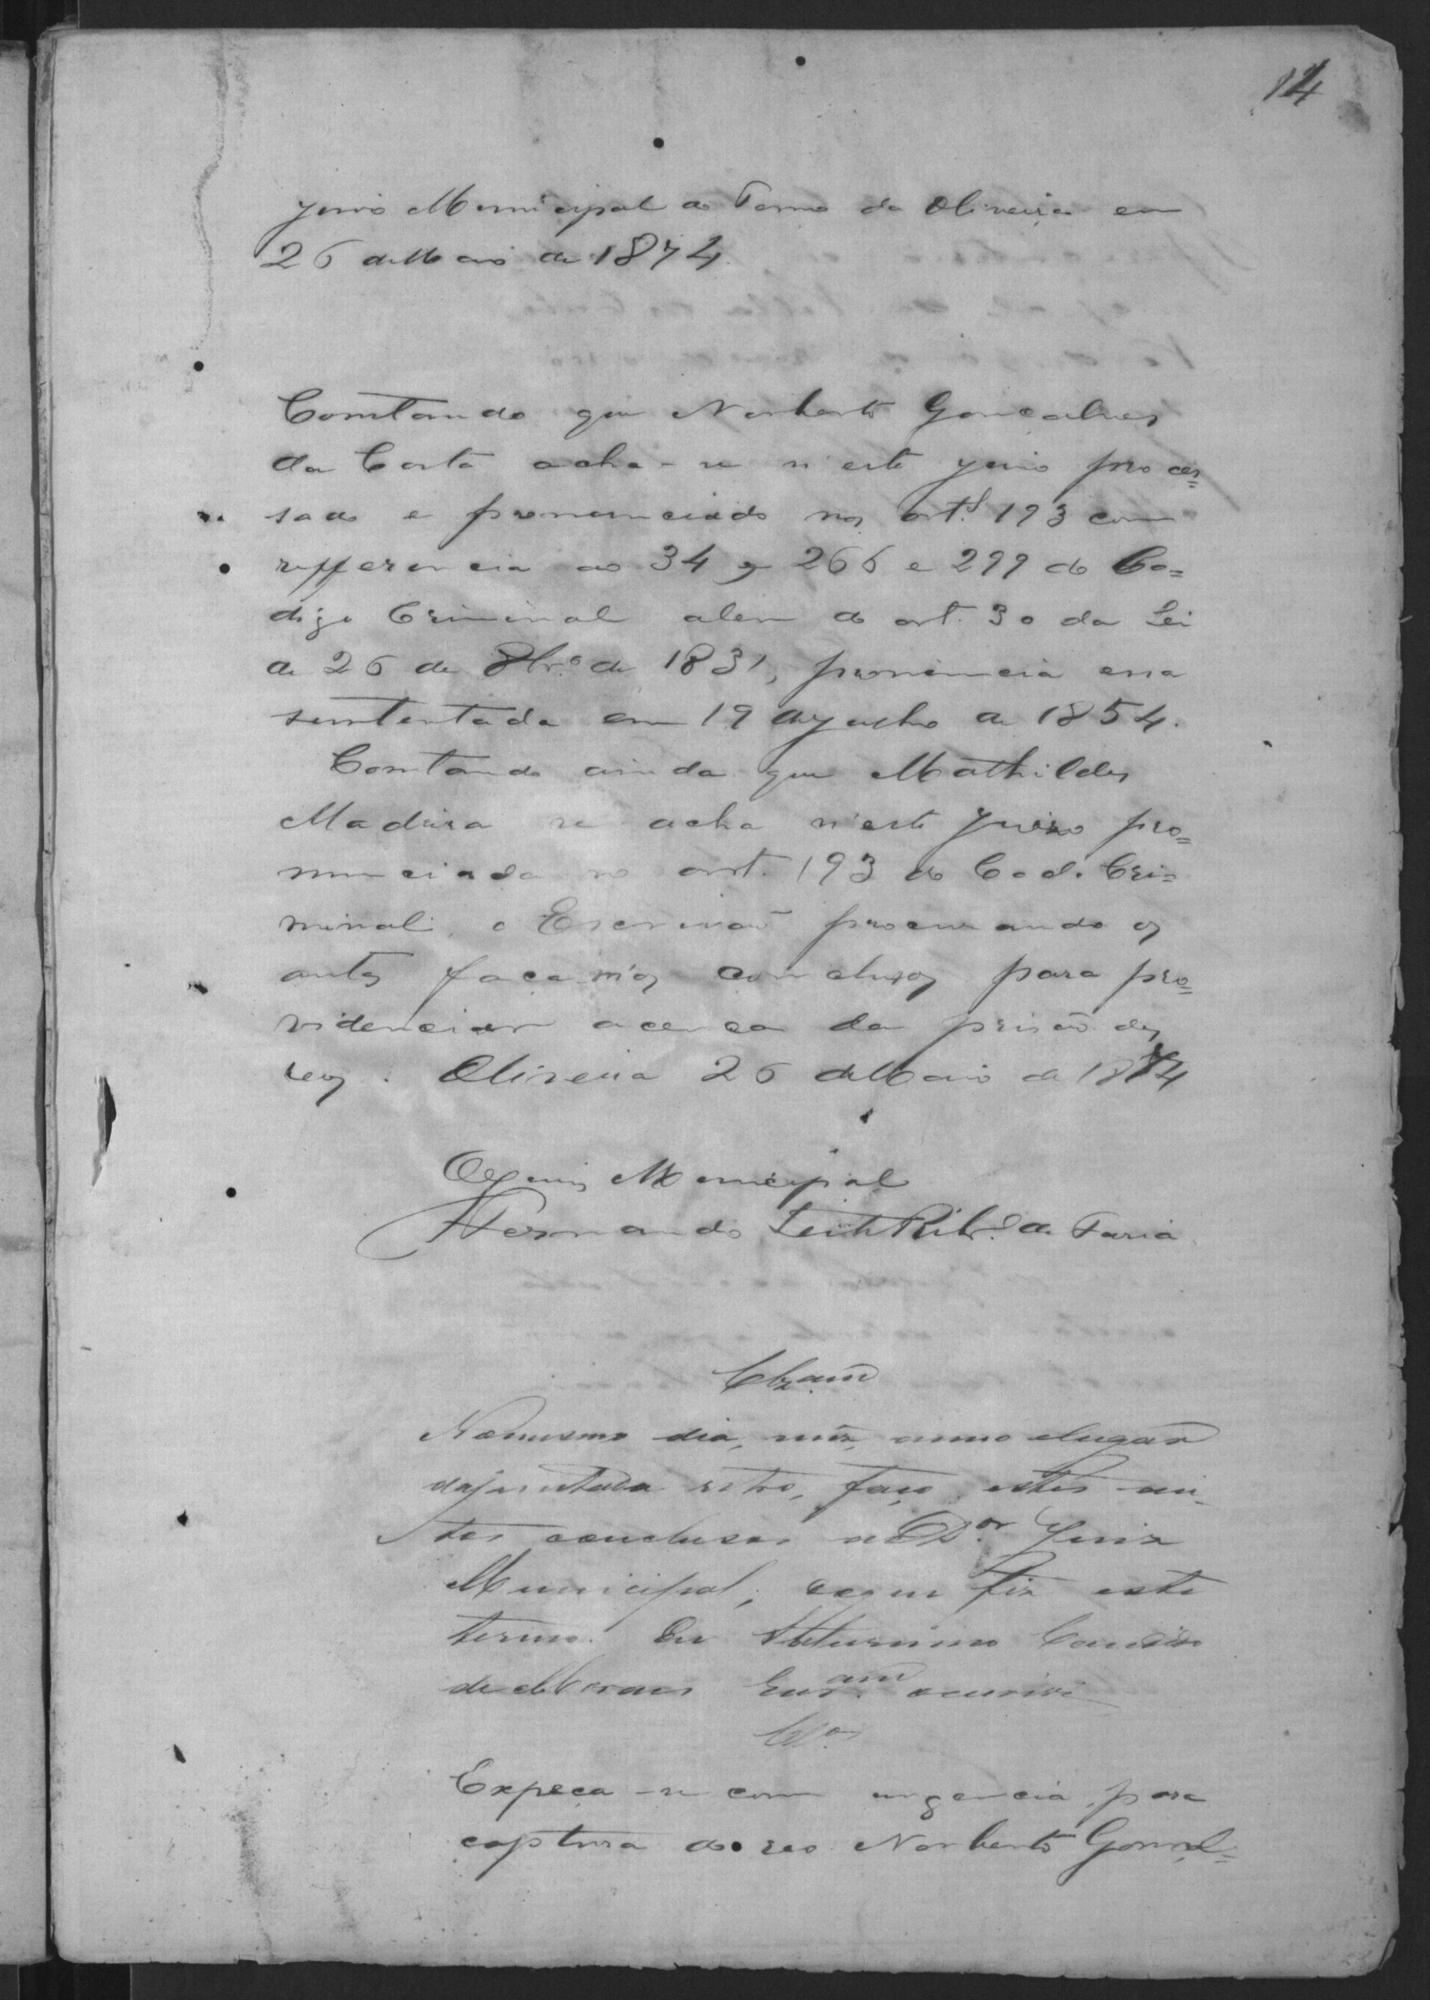 14
Juiso Municipal do Termo da Oliveira em
26 de Maio de 1874.
Constando que Norberto Gonçalves
da Costa acha-se n'este juiso proces=
sado e pronunciado nos art.s 193 com
refferencia ao 34 e 266 e 299 do Co=
digo Criminal alem do art. 3o da Lei
de 26 de 8br.o de 1831, pronuncia essa
sustentada em 19 de Julho de 1854.
Constando ainda que Mathildes
Madeira se acha n'este Juizo pro=
nunciada no art. 193 do Cod. Cri=
minal, o Escrivaõ procurando os
autos faça-m'os conclusos para pro=
videnciar acerca da prisaõ dos
reos. Oliveira 26 de Maio de 1874
O Juiz Municipal
Fernando Leite Ribr.o de Faria
Clzam
No mesmo dia, mez, anno e lugar
da juntada retro, faço estes au-
tos conclusos ao D.or Juiz
Municipal, do que fiz este
termo. Eu Saturnino Candido
de Moraes Escr.am o escrevi
Cl.os
Expeça-se com urgencia para
captura do reo Norberto Gonçal=